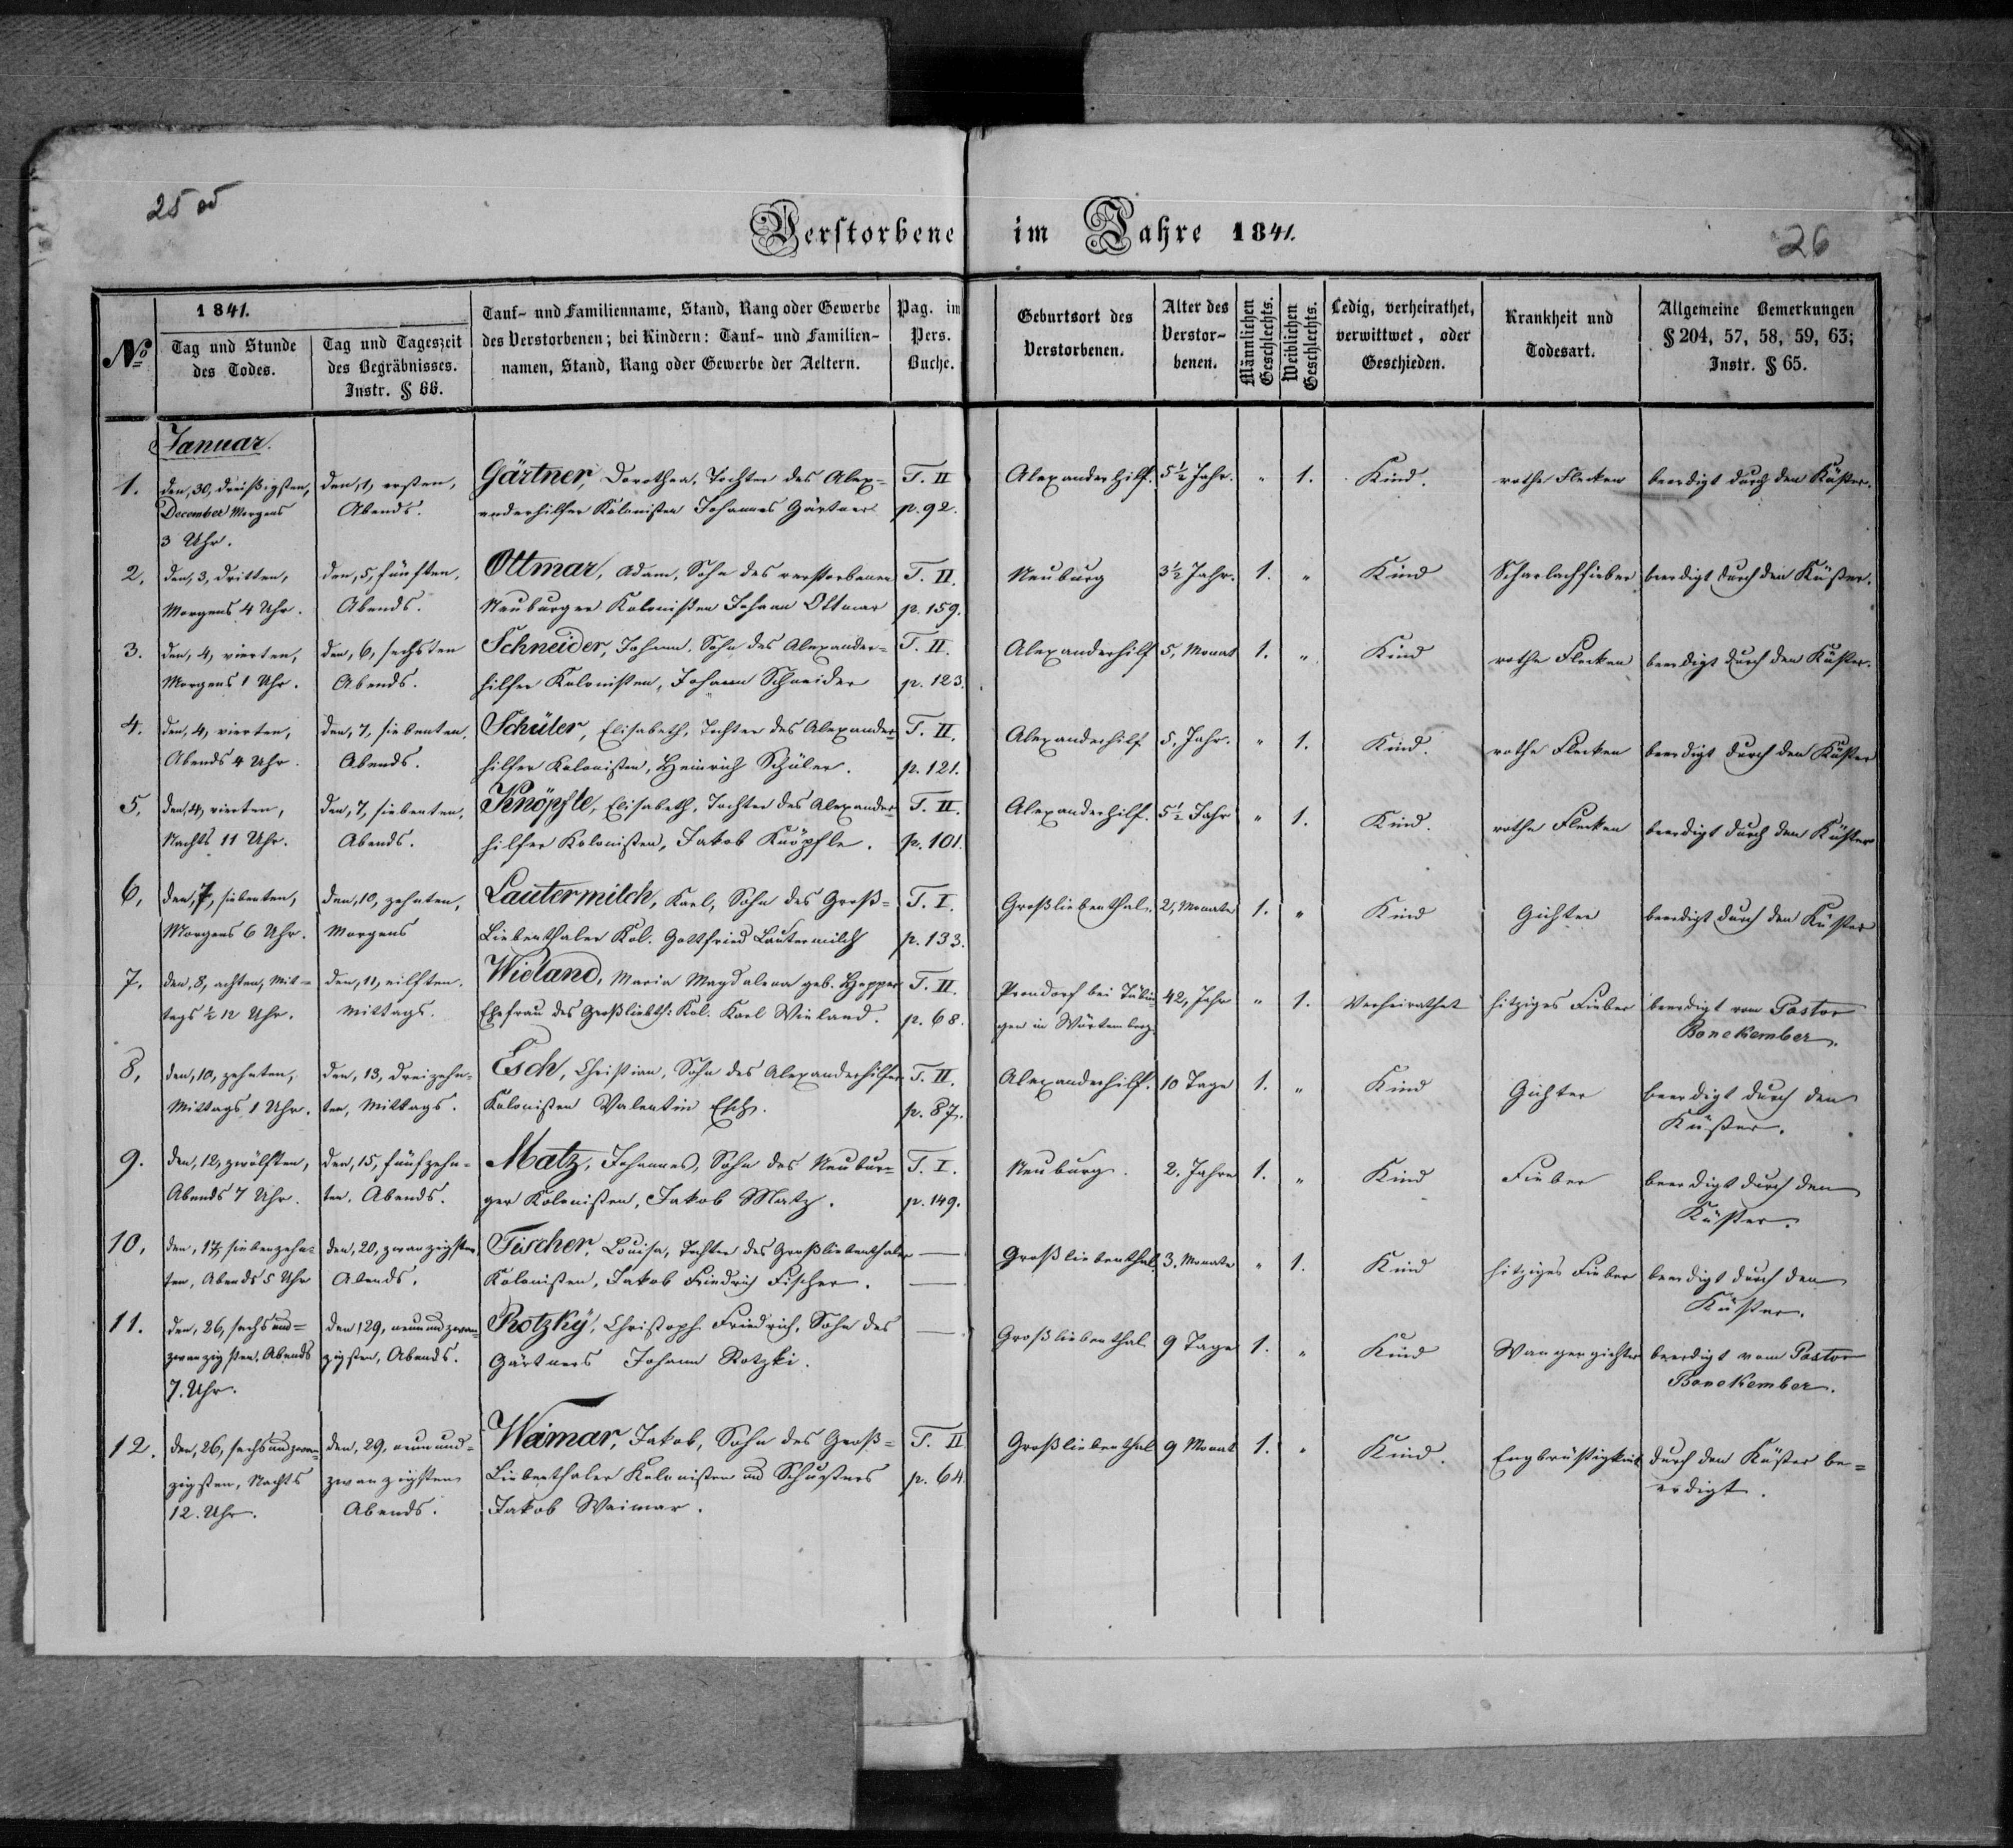 25 об
26
Verstorbene im Jahre 1841.
№
1841.
Tag und Stunde
des Todes.
Tag und Tageszeit
des Begräbnisses.
Instr. § 66.
Tauf- und Familienname, Stand, Rang oder Gewerbe
des Verstorbenen; bei Kindern: Tauf- und Familien-
namen, Stand, Rang oder Gewerbe der Aeltern.
Pag. im
Pers.
Buche.
Geburtsort des
Verstorbenen.
Alter des
Verstor-
benen.
Männlichen
Geschlechts.
Weiblichen
Geschlechts.
Ledig, verheirathet,
verwittwet, oder
Geschieden.
Krankheit und
Todesart.
Allgemeine Bemerkungen
§ 204, 57, 58, 59, 63;
Instr. § 65.
Januar.
1. den, 30, dreißigsten, den, 1, ersten, Gärtner, Dorothea, Tochter des Alex= T. II Alexanderhilf. 5½ Jahr. " 1. Kind. rothe Flecken beerdigt durch den Küster.
December Morgens Abends. anderhilfer Kolonisten Johannes Gärtner p. 92.
3 Uhr.
2. den, 3, dritten, den, 5, fünften, Ottmar, Adam, Sohn des verstorbenen T. II. Neuburg 3½ Jahr. 1. " Kind Scharlachfieber beerdigt durch den Küster.
Morgens 4 Uhr. Abends. Neuburger Kolonisten Johann Ottmar p. 159.
3. den, 4, vierten, den, 6, sechsten Schneider, Johann, Sohn des Alexander= T. II. Alexanderhilf 5, Monat 1. " Kind rothe Flecken beerdigt durch den Küster.
Morgens 1 Uhr. Abends. hilfer Kolonisten, Johann Schneider p. 123.
4. den, 4, vierten, den, 7, siebenten, Schüler, Elisabeth, Tochter des Alexander= T. II. Alexanderhilf 5, Jahr. " 1. Kind. rothe Flecken beerdigt durch den Küster
Abends 4 Uhr. Abends. hilfer Kolonisten, Heinrich Schüler. p. 121.
5. den, 4, vierten, den, 7, siebenten, Knöpfle, Elisabeth, Tochter des Alexander= T. II. Alexanderhilf. 5½ Jahr " 1. Kind. rothe Flecken beerdigt durch den Küster
Nachts 11 Uhr. Abends. hilfer Kolonisten, Jakob Knöpfle. p. 101.
6, den, 7, siebenten, den, 10, zehnten, Lautermilch, Karl, Sohn des Groß= T. I. Großliebenthal. 2, Monate 1. " Kind Gichter beerdigt durch den Küster
Morgens 6 Uhr. Morgens Liebenthaler Kol. Gottfried Lautermilch p. 133.
7. den, 8, achten, Mit= den, 11, eilften. Wieland, Maria Magdalena geb. T. II. bei Tübin= 42, Jahr " 1. Verheirathet hitziges Fieber beerdigt vom Pastor
tags ½ 12 Uhr. Mittags. Ehefrau des Großliebth: Kol. Karl Wieland. p. 68. gen in Würtemberg Bonekember.
8, den, 10, zehnten, den, 13, dreizehn= Esch, Christian, Sohn des Alexanderhilfer T. II. Alexanderhilf. 10 Tage 1. " Kind Gichter beerdigt durch den
Mittags 1 Uhr. ten, Mittags. Kolonisten Valentin Esch. p. 87. Küster.
9. den, 12, zwölften, den, 15, fünfzehn= Matz, Johannes, Sohn des Neubur= T. I. Neuburg. 2. Jahre 1. " Kind Fieber beerdigt durch den
Abends 7 Uhr. ten, Abends. ger Kolonisten, Jakob Matz. p. 149. Küster.
10, den, 17, siebenzehn= den, 20, zwanzigsten, Fischer, Louisa, Tochter des Großliebenthaler — Großliebenthal. 3. Monate " 1. Kind hitziges Fieber beerdigt durch den
ten, Abends 5 Uhr Abends. Kolonisten, Jakob Friedrich Fischer. — Küster.
11. den, 26, sechs und= den, 29, neun und zwan= Rotzky, Christoph Friedrich, Sohn des — Großliebenthal 9 Tage 1. " Kind beerdigt vom Pastor
zwanzigsten, Abends zigsten, Abends. Gärtners Johann Rotzki. Bonekember.
7. Uhr.
12. den, 26, sechs und zwan= den, 29, neun und= Weimar, Jakob, Sohn des Groß= T. II Großliebenthal 9 Monat 1. " Kind. Engbrüstigkeit durch den Küster be=
zigsten, Nachts zwanzigsten Liebenthaler Kolonisten und Schusters p. 64. erdigt.
12. Uhr. Abends. Jakob Weimar.